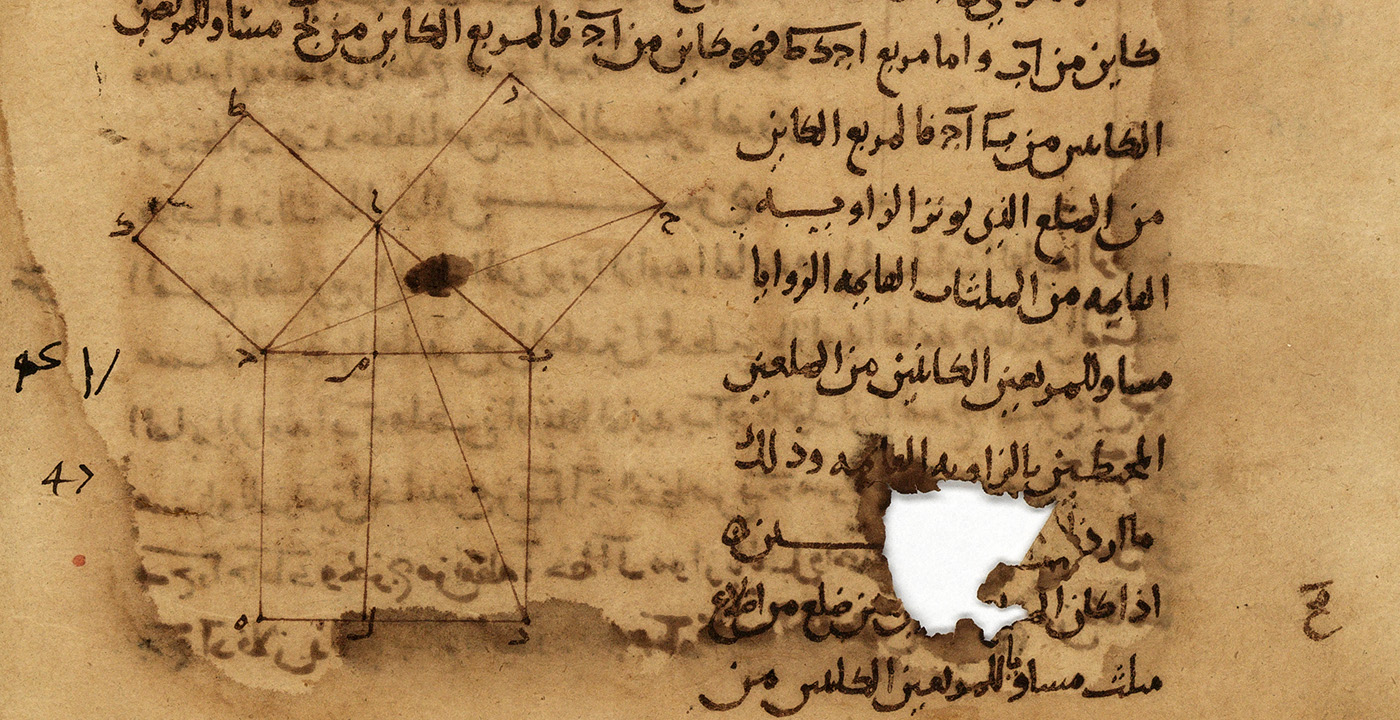 كاين من اب واما مربع اجكط فهو كاين من اج فالمربع الكاين من بج مساو للمربعين
الكاينين من با اج فالمربع الكاين
من الضلع الذي يوتر الزاويه
القايمه من المثلثات القايمه الزوايا
مساو للمربعين الكاينين من الضلعين
المحيطين بالزاويه القايمه وذلك
ما اردنا
اذا كان ضلع من اضلاع
مثلث مساويا للمربعين الكاينين من
ز
ط
ا
ح
ك
ج
م
ب
ه
ل
د